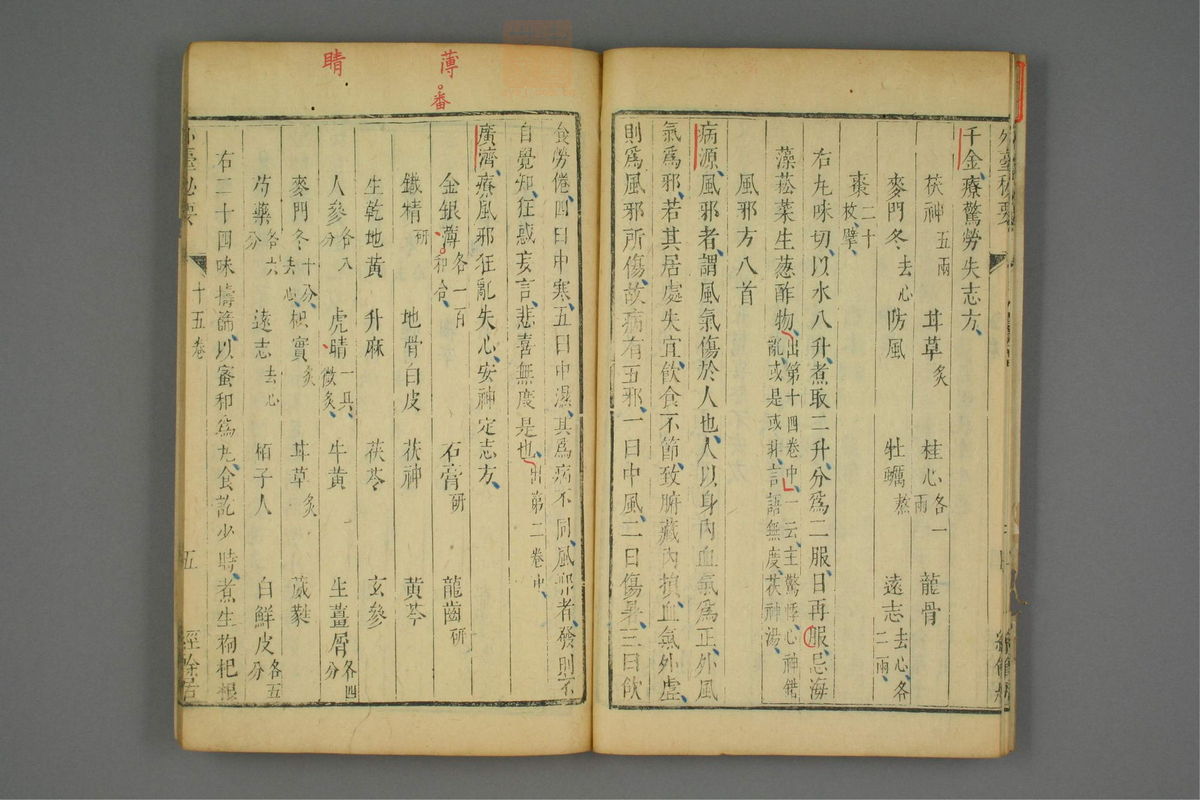 外臺秘要
千金療驚勞失志方
茯神五兩 甘草炙 桂心各一兩 龍骨
麥門冬去心 防風 牡蠣熬 遠志去心各二兩
棗二十枚擘
右九味切以水八升煮取二升分爲二服日再服忌海
藻菘菜生葱酢物出第十四卷中一云主驚悸心神錯亂或是或非言語無度茯神湯
風邪方八首
病源風邪者謂風氣傷於人也人以身內血氣爲正外風
氣爲邪若其居處失宜飲食不節致腑藏內損血氣外虛
則爲風邪所傷故病有五邪一曰中風二曰傷暑三曰飲
食勞倦四曰中寒五曰中濕其爲病不同風邪者發則不
自覺知狂惑妄言悲喜無度是也出第二卷中
廣濟療風邪狂亂失心安神定志方
金銀薄各一百和合 石膏研 龍齒研
鐵精研 地骨白皮 茯神 黃芩
生乾地黃 升麻 茯苓 玄參
人參各八分 虎睛一具微炙 牛黃 生薑屑各四分
麥門冬十分去心 枳實炙 甘草炙 葳蕤
芍藥各六分 遠志去心 栢子人 白鮮皮各五分
右二十四味擣篩以蜜和爲丸食訖少時煮生枸杞根
外臺秘要
十五卷
五
經餘居
薄
番
睛